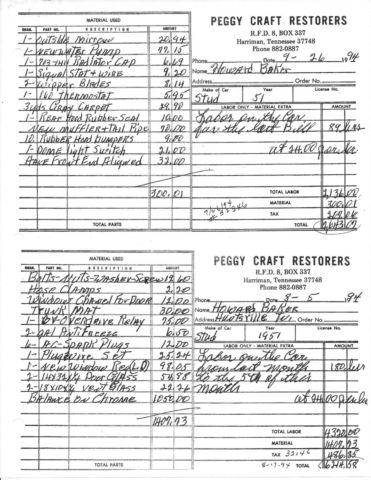 MATERIAL USED
QUAN. PART NO. DESCRIPTION AMOUNT
1- Outside Mirrow 20.94
1- New Water Pump
Radiator Cap 6.69
1- Signal Stat & wire 9.20
2- Wipper Blades 8.14
1- 160 Thermostat 5.95
3yds Gray Carpet
1- Rear Hood Rubber Seal 10.00
New Muffler & Tail Pipe
10 Rubber Hood Bumpers
1- Dome Light Switch 21.00
Have Front End Aligned 32.00
300.01
TOTAL PARTS
PEGGY CRAFT RESTORERS
R.F.D. 8, BOX 337
Harriman, Tennessee 37748
Phone 882-0887
Phone 9-26 1994
Name Howard Baker
Address Order No.
Make of Car Year
Stud 51
LABOR ONLY - MATERIAL EXTRA AMOUNT
Labor on the Car
for the last Bill 89 hrs
at 24.00 per hr
TOTAL LABOR 2,136.00
MATERIAL 300.01
TAX
TOTAL
MATERIAL USED
QUAN. PART NO. DESCRIPTION AMOUNT
Bolts-Nuts-Washer-Screw
Hose Clamps 2.20
Window Chanel For Door 12.00
Trunk Mat 30.00
1- 6V-Overdrive Relay
2- gal Antifreeze
6- AC-Spark Plugs 12.00
1- Plug Wire Set 25.24
1- New Window Reg 98.05
Door Glass
Vent Glass
Balance on Chrome 1050.00
1409.73
TOTAL PARTS
PEGGY CRAFT RESTORERS
R.F.D. 8, BOX 337
Harriman, Tennessee 37748
Phone 882-0887
Phone 8-5 1994
Name Howard Baker
Address Huntsville Tn. Order No.
Make of Car Year
Stud 1951
LABOR ONLY - MATERIAL EXTRA AMOUNT
Labor on the Car
from last month 180 hrs
to the 5th of this
month
at 24.00 per hr
TOTAL LABOR 4320.00
MATERIAL 1409.73
TAX 486.85
8-17-94 TOTAL 6216.58